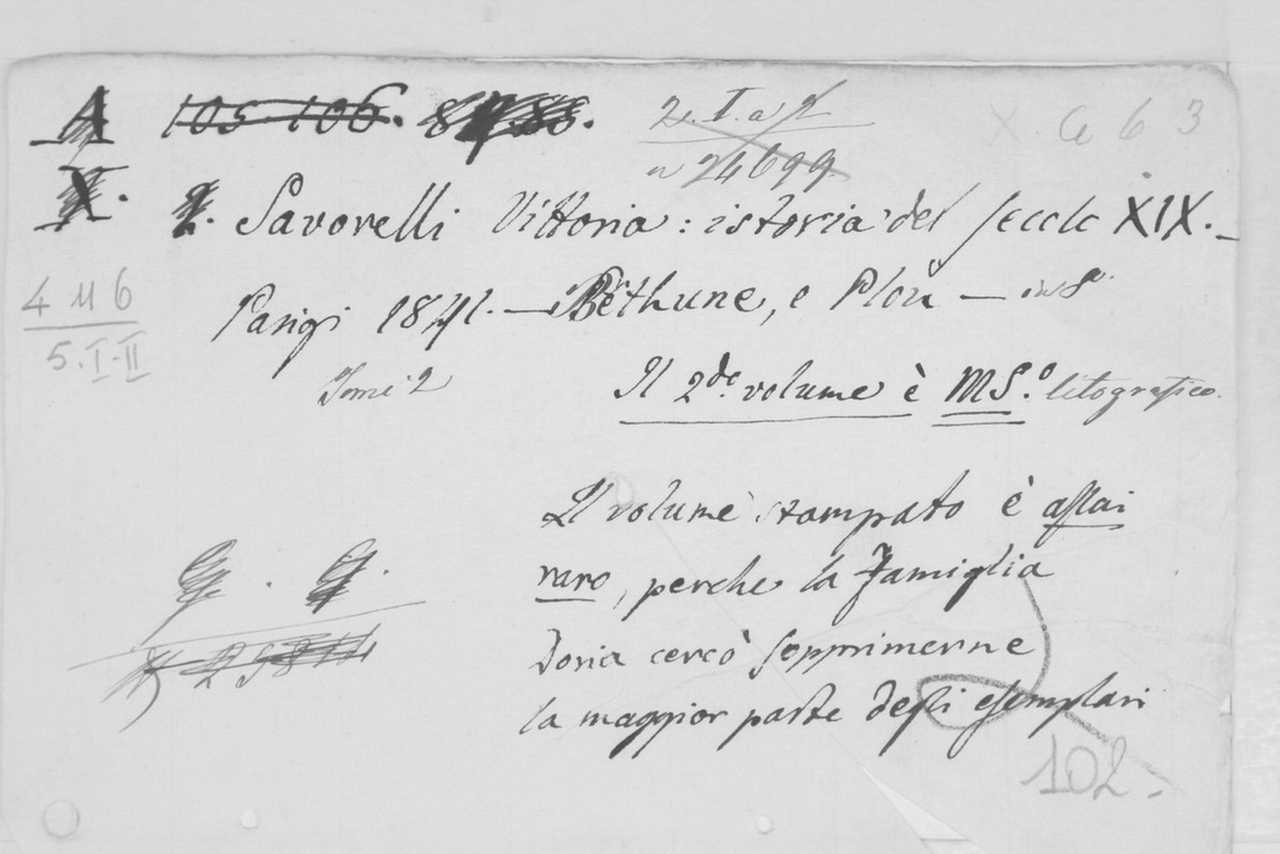 A 105 106.
2. I. a 2
24699
X. a 6 3
X. 2. Savorelli Vittoria: istoria del secolo XIX. —
4 M 6
5. I-II
Parigi 1841. — Béthune, e Plon — in 8°
Tomi 2
Il 2do. volume è MS.o litografico.
Il volume stampato è assai
raro, perche la Famiglia
Doria cercò sopprimerne
la maggior parte degli esemplari
G. G.
102.